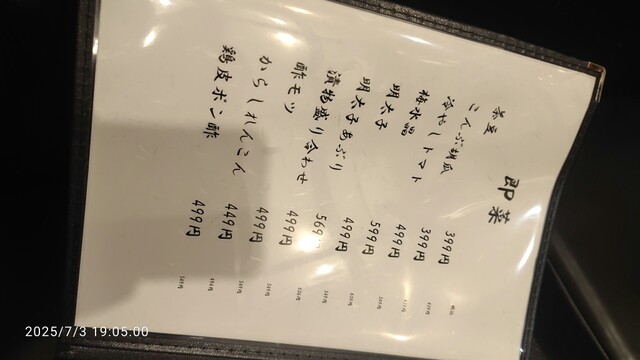 即菜
茶豆 399円
こんぶ胡瓜 399円
冷やしトマト 499円
梅水晶 599円
明太子 499円
明太子あぶり 569
漬物盛り合わせ 499円
酢モツ 499円
からしれんこん 449円
鶏皮ポン酢 499円
2025/7/3 19:05:00